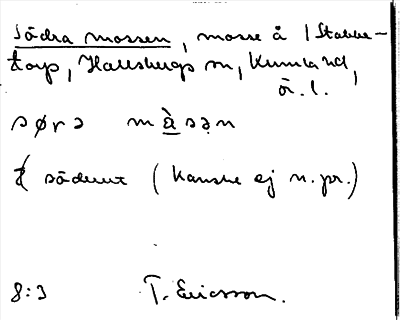 Södra mossen, mosse å 1 Stabbe-
torp, Hallsbergs sn, Kumla hd,
ör. l.
søra mà̲sǝn
söderut (kanske ej n. pr.)
8:3 T. Ericsson.